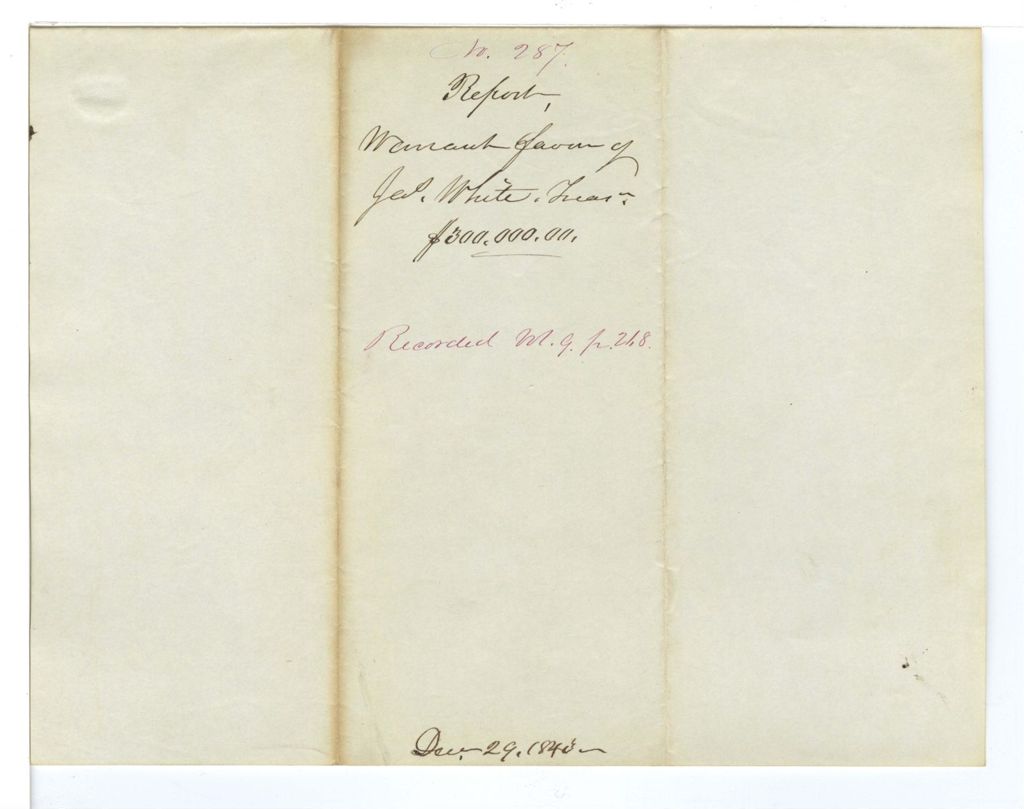 No. 287.
Report,
Warrant favor of
Jed. White. Treasr.
$300.000.00.
Recorded Vol. 9. p. 268.
Dec. 29. 1845